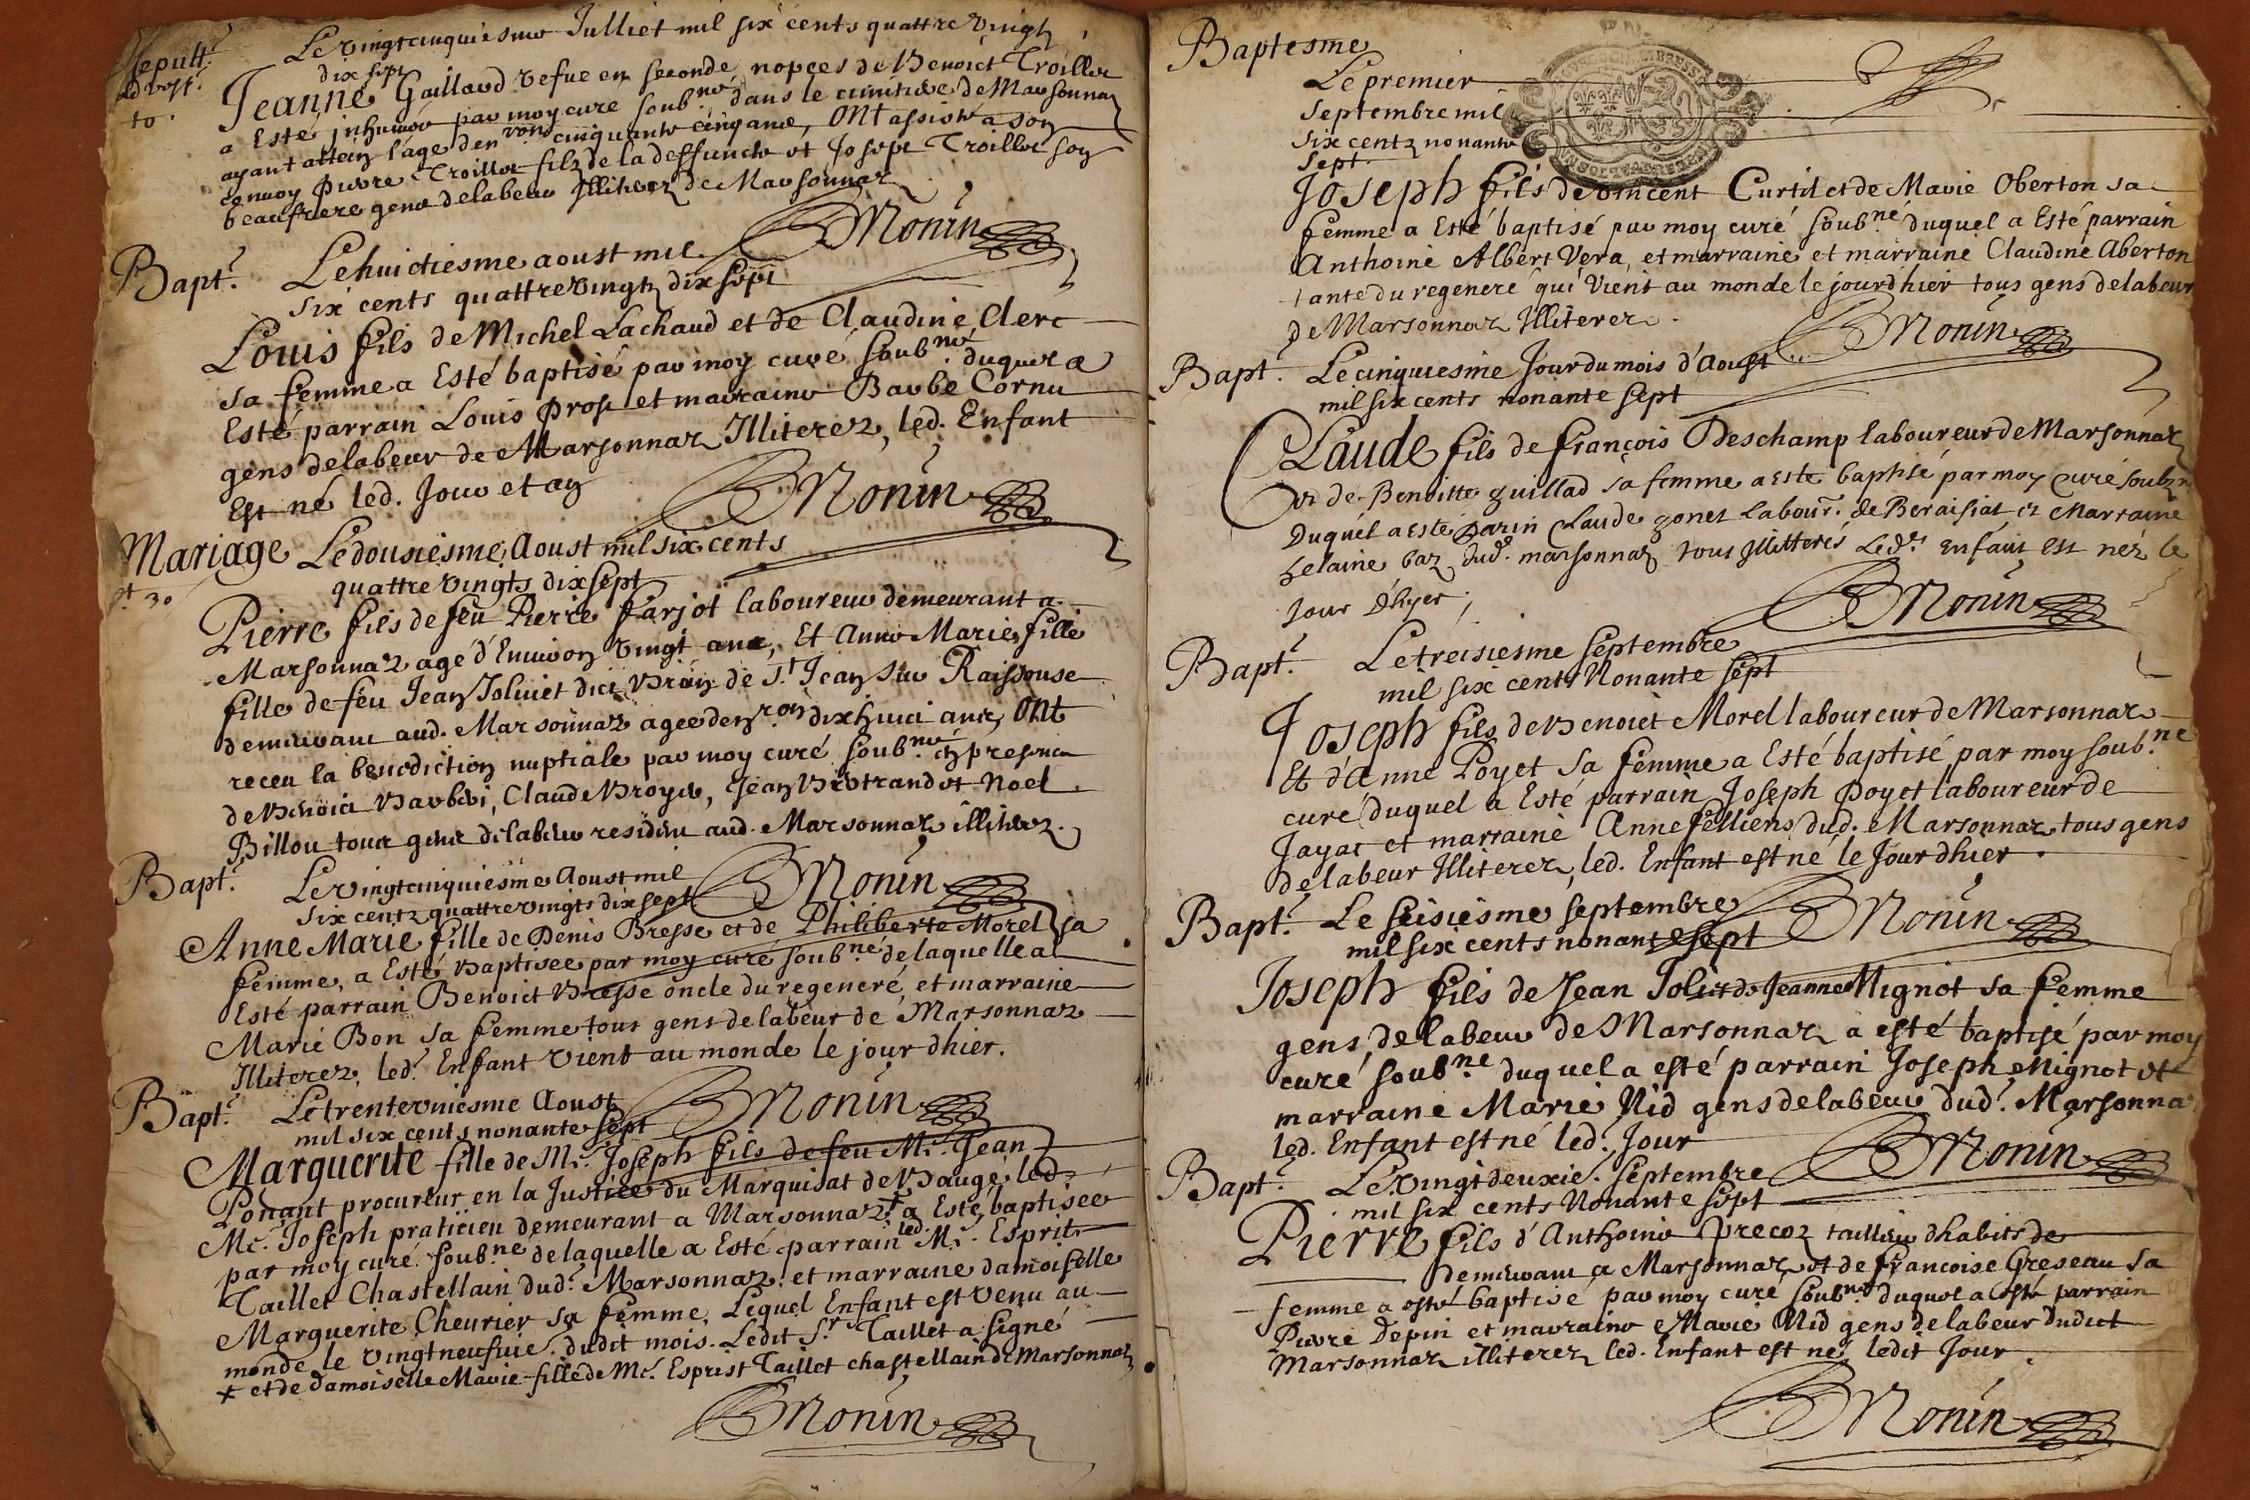 Sepult.
Le vingtcinquiesme Julliet mil six cents quattre vingt
dix sept
Jeanne Gaillard vefue en seconde nopces de Benoict Troillet
a Esté inhumée par moy curé soub.né dans le cimitiere de Marsonnaz
ayant attein l'age den.ron cinquante cinq ans, ont assisté a son
conuoy Pierre Troillet fils de la deffuncte et Joseph Troillet son
beaufrere gens de labeur Illiterez de Marsonnaz
Monin
Bapt.
Le huictiesme aoust mil
six cents quattre vingtz dix sept
Louis fils de Michel Lachaud et de Claudine Clerc
sa femme a Esté baptisé par moy curé soub.né duquel a
Esté parrain Louis Prost et marraine Barbe Cornu
gens de labeur de Marsonnaz Illiterez, led. Enfant
Est né led. Jour et an
Monin
Mariage
Le dousiesme Aoust mil six cents
quattre vingts dix sept
Pierre fils de feu Pierre Farjot laboureur demeurant a
Marsonnaz agé d'Enuiron vingt ans, Et Anne Marie fille
fille de feu Jean Joliuet dict Brun de S.t Jean sur Raissouse
demeurant aud. Marsonnaz agee den.ron dixhuict ans, ont
receu la benediction nuptiale par moy curé soub.né en presence
de Benoict Barbet, Claude Broyer, Jean Bertrand et Noel
Billou tous gens de labeur residens aud. Marsonnaz illiterez.
Monin
Bapt.
Le vingtcinquiesme Aoust mil
six centz quattre vingts dix sept
Anne Marie fille de Denis Bresse et de Philiberte Morel sa
femme, a Esté Baptisee par moy curé soub.né de laquelle a
Esté parrain Benoict Bresse oncle du regeneré, et marraine
Marie Bon sa femme tous gens de labeur de Marsonnaz
Illiterez, led. Enfant vient au monde le jour dhier.
Monin
Bapt.
Le trenteuniesme Aoust
mil six cents nonante sept
Marguerite fille de M.e Joseph fils de feu M.e Jean
Ponant procureur en la Justice du Marquisat de Baugé, led.
M.e Joseph praticien demeurant a Marsonnaz + a Esté baptisée
par moy curé soub.né de laquelle a Esté parrain led. M.e Esprit
Taillet Chastellain dud. Marsonnaz, et marraine damoiselle
Marguerite Cheurier sa femme, Lequel Enfant est venu au
monde le vingt neufuie. dudit mois. Ledit S.r Taillet a signé
+ et de damoiselle Marie fille de M.e Esprist Taillet chastellain de Marsonnaz
Monin
Baptesme
Le premier
Septembre mil
six centz nonante
sept
Joseph fils de Vincent Curtil et de Marie Oberton sa
femme a Esté baptisé par moy curé soub.né duquel a Esté parrain
Anthoine Albert Vera, et marraine et marraine Claudine Aberton
tante du regeneré qui vient au monde le jour dhier tous gens de labeur
de Marsonnaz Illiterez.
Monin
Bapt.
Le cinquiesme Jour du mois d'Aoust
mil six cents nonante sept
Claude fils de françois Deschamp laboureur de Marsonnaz
et de Benoitte guillad sa femme a este baptisé par moy Curé soub.n
Duquel a este Parin Claude gonet labour. de Beraisiat et Marraine
helaine baz dud. marsonnaz tous Illitterés Led. enfant est nez le
Jour D'hyer,
Monin
Bapt.
Le treisiesme Septembre
mil six cents Nonante sept
Joseph fils de Benoict Morel laboureur de Marsonnaz
Et d'Anne Poyet sa femme a Esté baptisé par moy soub.né
curé duquel a Esté parrain Joseph Poyet laboureur de
Jayat et marraine Anne felliens dud. Marsonnaz tous gens
de labeur Illiterez, led. Enfant est né le Jour dhier.
Monin
Bapt.
Le seisiesme Septembre
mil six cents nonante sept
Joseph fils de Jean Joli et de Jeanne Mignot sa femme
gens de labeur de Marsonnaz a esté baptisé par moy
curé soub.né duquel a esté parrain Joseph Mignot et
marraine Marie Nid gens de labeur dud. Marsonna
led. Enfant est né led. Jour
Monin
Bapt.
Le vingt deuxie. Septembre
mil six cents Nonante sept
Pierre fils d'Anthoine Precoz tailleur dhabits de
demeurant a Marsonnaz et de francoise Greseau sa
femme a esté baptisé par moy curé soub.né duquel a esté parrain
Pierre Depin et marraine Marie Nid gens de labeur dudict
Marsonnaz illiterez led. Enfant est né ledit Jour.
Monin